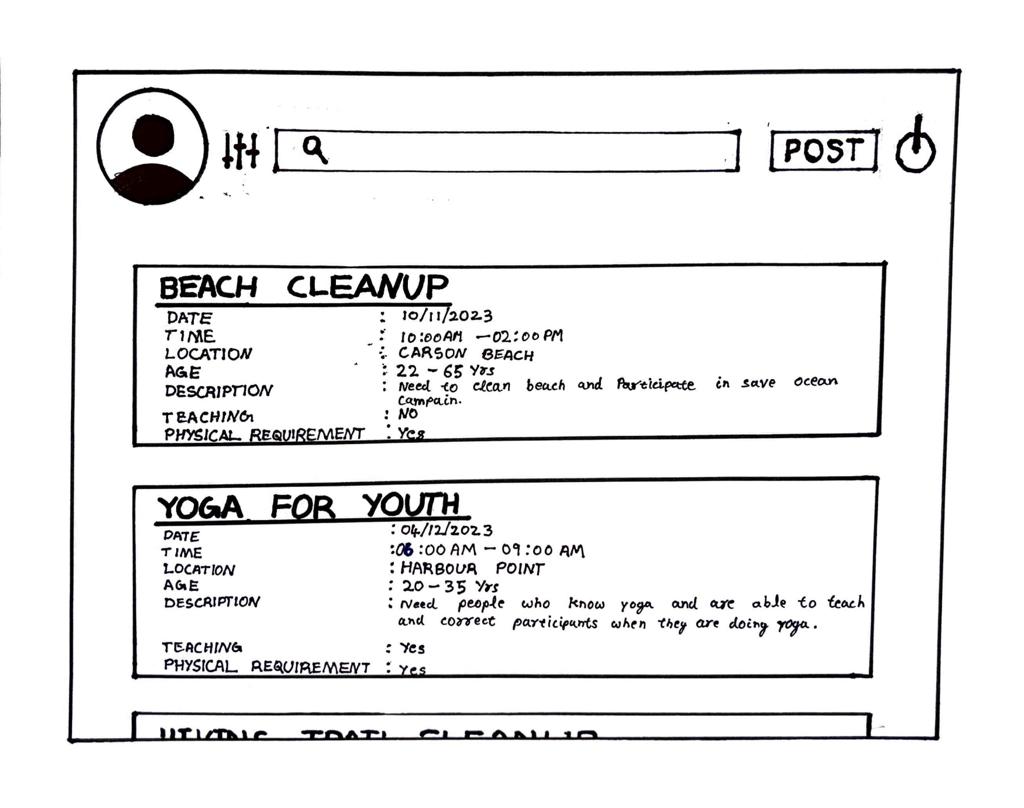 POST
BEACH CLEANUP
DATE : 10/11/2023
TIME : 10:00AM - 02:00 PM
LOCATION : CARSON BEACH
AGE : 22 - 65 Yrs
DESCRIPTION : Need to clean beach and Participate in save ocean
Campain.
TEACHING : NO
PHYSICAL REQUIREMENT : Yes
YOGA FOR YOUTH
DATE : 04/12/2023
TIME : 06:00 AM - 09:00 AM
LOCATION : HARBOUR POINT
AGE : 20 - 35 Yrs
DESCRIPTION : Need people who know yoga and are able to teach
and correct participants when they are doing yoga.
TEACHING : Yes
PHYSICAL REQUIREMENT : Yes
HIKING TRAIL CLEANUP